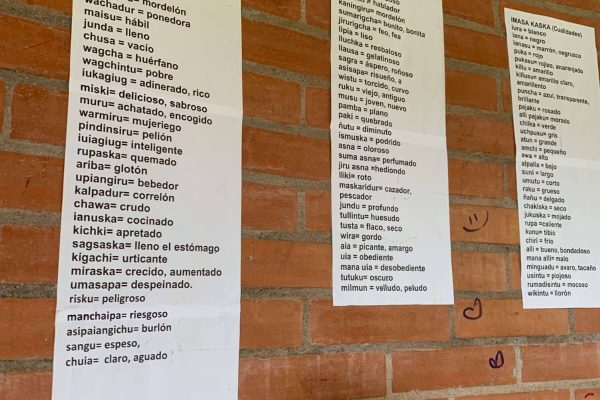 = mordelón
wachadur= ponedora
maisu= hábil
junda = lleno
chusa = vacío
wagcha = huérfano
wagchintu= pobre
iukagiug = adinerado, rico
miski= delicioso, sabroso
muru= achatado, encogido
warmiru= mujeriego
pindinsiru= pelión
iuiagiug= inteligente
rupaska= quemado
ariba= glotón
upiangiru= bebedor
kalpadur= correlón
chawa= crudo
ianuska= cocinado
kichki= apretado
sagsaska= lleno el estómago
kigachi= urticante
miraska= crecido, aumentado
umasapa= despeinado.
risku= peligroso
manchaipa= riesgoso
asipaiangichu= burlón
sangu= espeso,
chuia= claro, aguado
kaningiru= mordelón
sumarigcha= bonito, bonita
jirurigcha= feo, fea
lipia= liso
lluchka= resbaloso
llausa= gelatinoso
sagra= áspero, roñoso
asisapa= risueño, a
wistu= torcido, curvo
ruku= viejo, antiguo
musu= joven, nuevo
pamba= plano
paki= quebrado
ñutu= diminuto
ismuska= podrido
asna= oloroso
suma asna= perfumado
jiru asna =hediondo
lliki= roto
maskaridur= cazador,
pescador
jundu= profundo
tullintu= huesudo
tusta= flaco, seco
wira= gordo
aia= picante, amargo
uia= obediente
mana uia= desobediente
tutuku= oscuro
milmun= velludo, peludo
IMASA KASKA (Cualidades)
iura= blanco
iana= negro
ianasu= marrón, negruzco
puka= rojo
pukasun rojizo, anaranjado
killu= amarillo
killusu= amarillo claro,
amarillento
puncha= azul, transparente,
brillante
pajaku= rosado
alli pajaku= morado
chilka= verde
uchpusu= gris
atun= grande
amchi= pequeño
awa= alto
alpalla= bajo
suni= largo
umutu= corto
raku= grueso
ñañu= delgado
chakiska= seco
jukuska= mojado
rupa =caliente
kunu= tibio
chiri= frio
alli= bueno, bondadoso
mana alli= malo
minguadu= avaro, tacaño
usintu= piojoso
rumadisintu= mocoso
wikintu= llorón